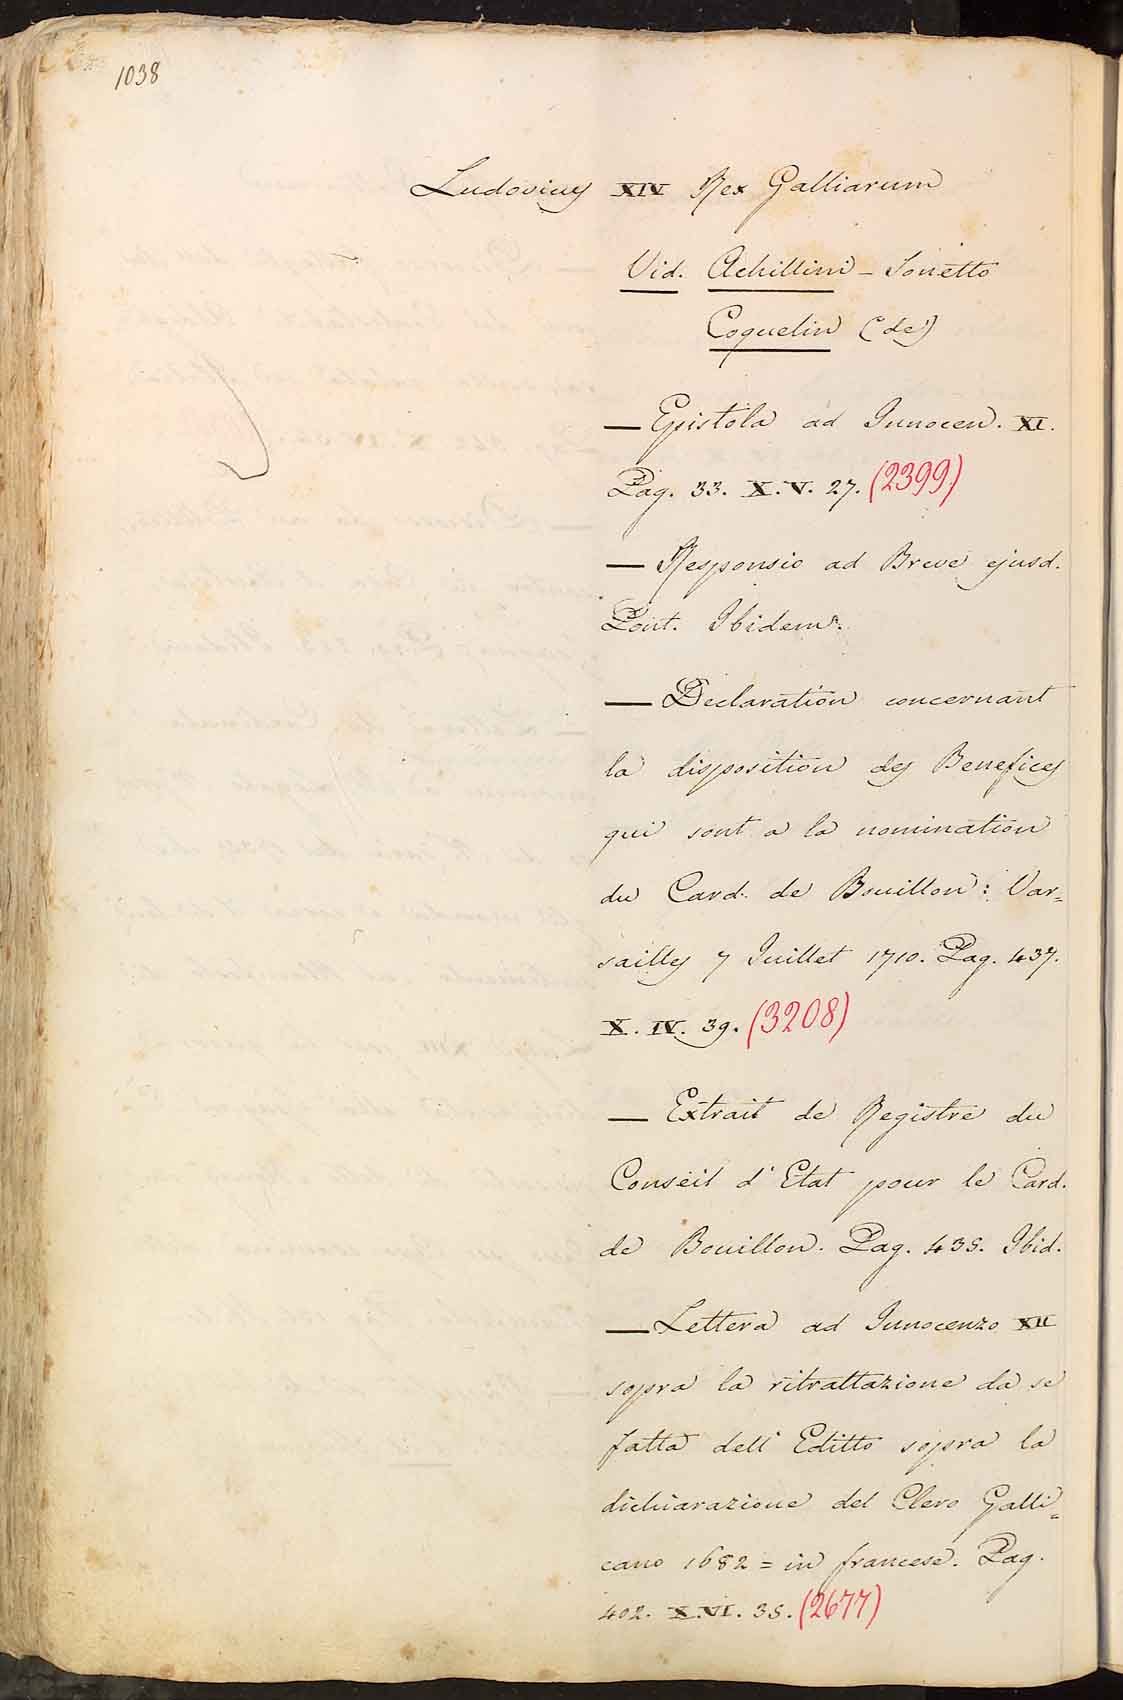 1038
Ludovicus XIV Rex Galliarum
Vid. Achillini - Sonetto
Coquelin (de)
— Epistola ad Innocen. XI.
Pag. 33. X. V. 27. (2399)
— Responsio ad Breve ejusd.
Pont. Ibidem.
— Declaration concernant
la disposition des Benefices
qui sont a la nomination
du Card. de Bouillon: Var=
sailles 7 Juillet 1710. Pag. 437.
X. IV. 39. (3208)
— Extrait de Registre du
Conseil d'Etat pour le Card.
de Bouillon. Pag. 438. Ibid.
— Lettera ad Innocenzo XII
sopra la ritrattazione da se
fatta dell' Editto sopra la
dichiarazione del Clero Galli=
cano 1682 = in francese. Pag.
402. X.VI. 38. (2677)